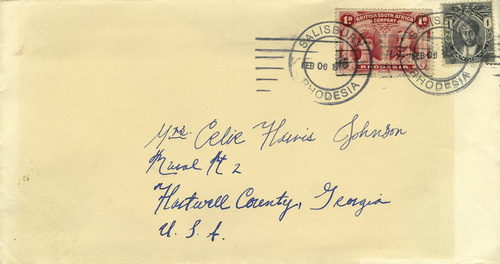 SALISBURY
FEB 06
RHODESIA
1d BRITISH SOUTH AFRICA 1d
COMPANY
RHODESIA
SALISBURY
FEB 06
RHODESIA
1 1
Mrs. Celie Harris Johnson
Rural Rt 2
Hartwell County, Georgia
U.S.A.